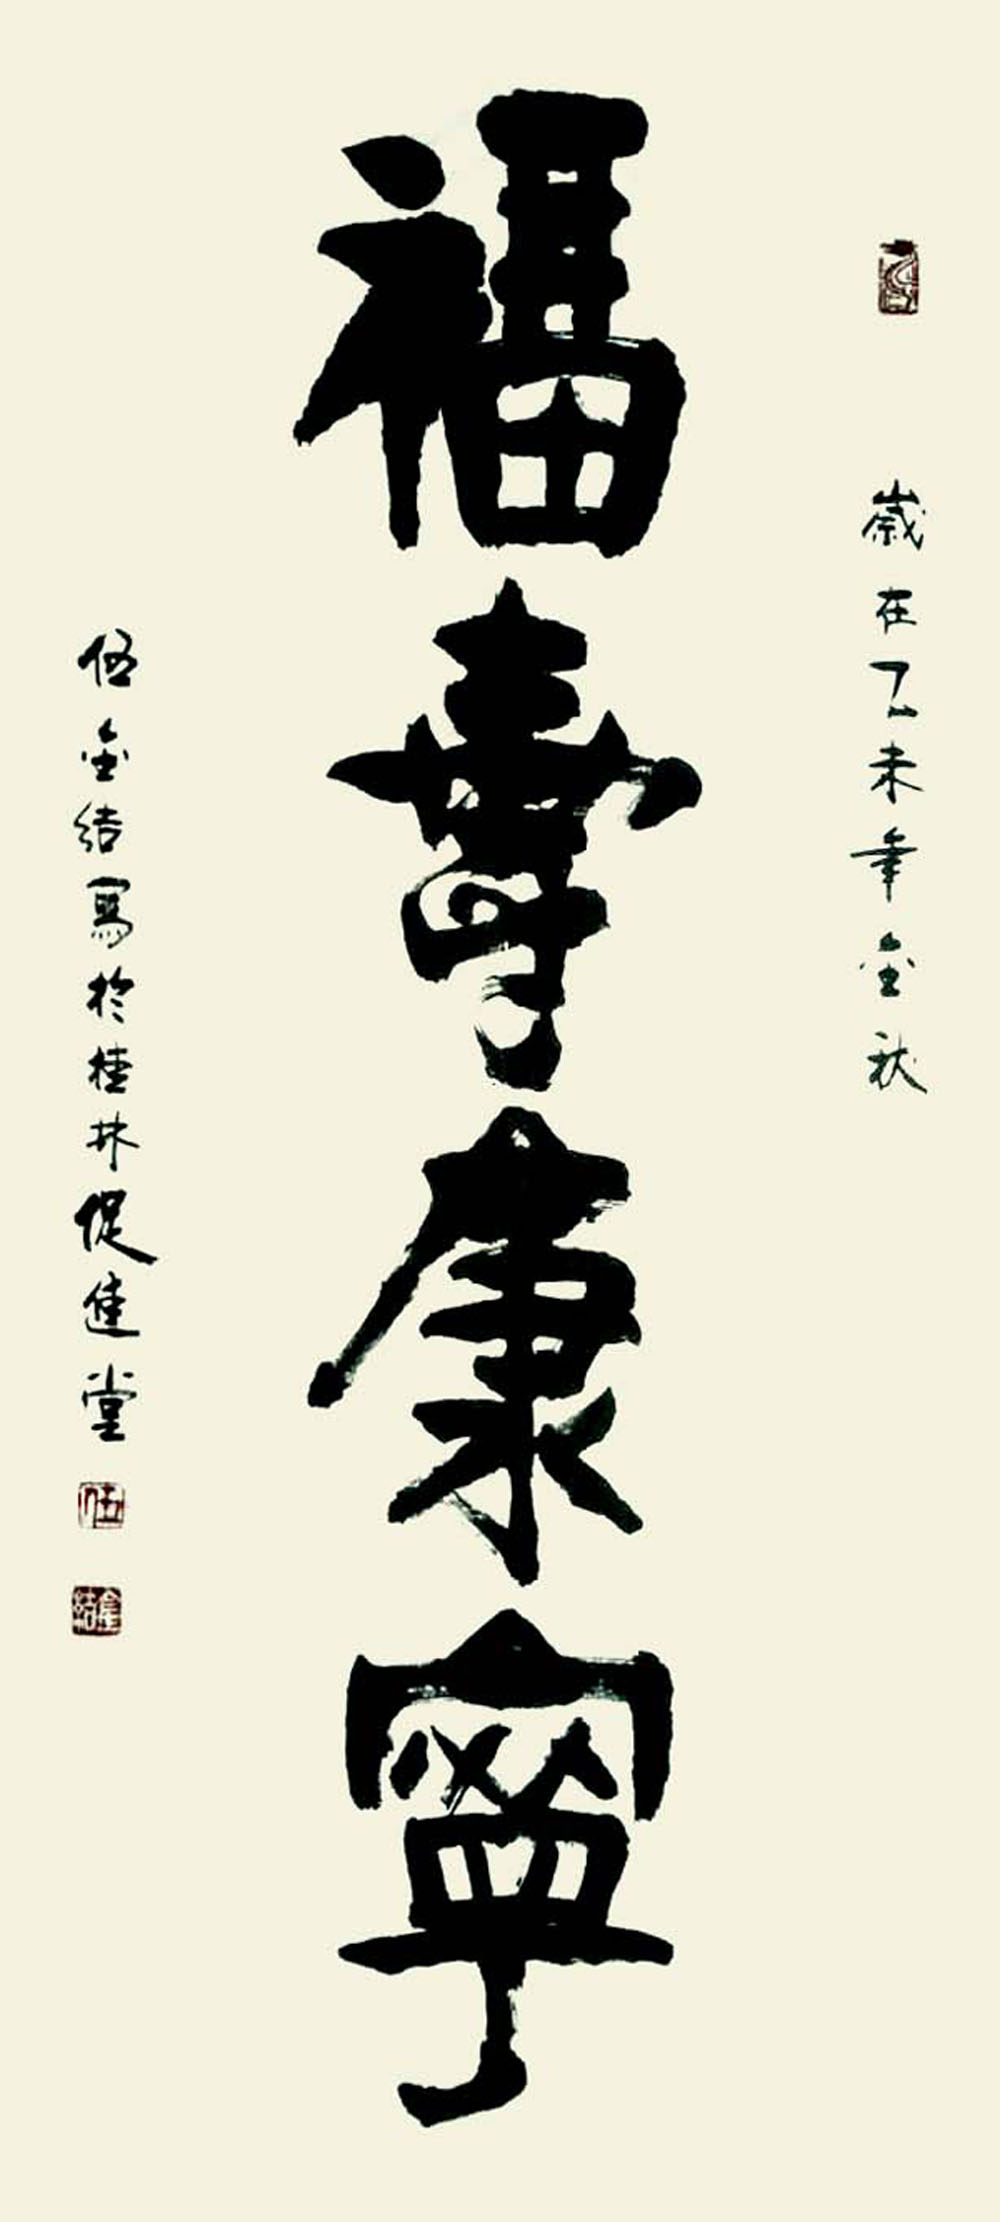 歲在乙未年金秋
福壽康寧
伍金結寫於桂林促進堂
伍
金結